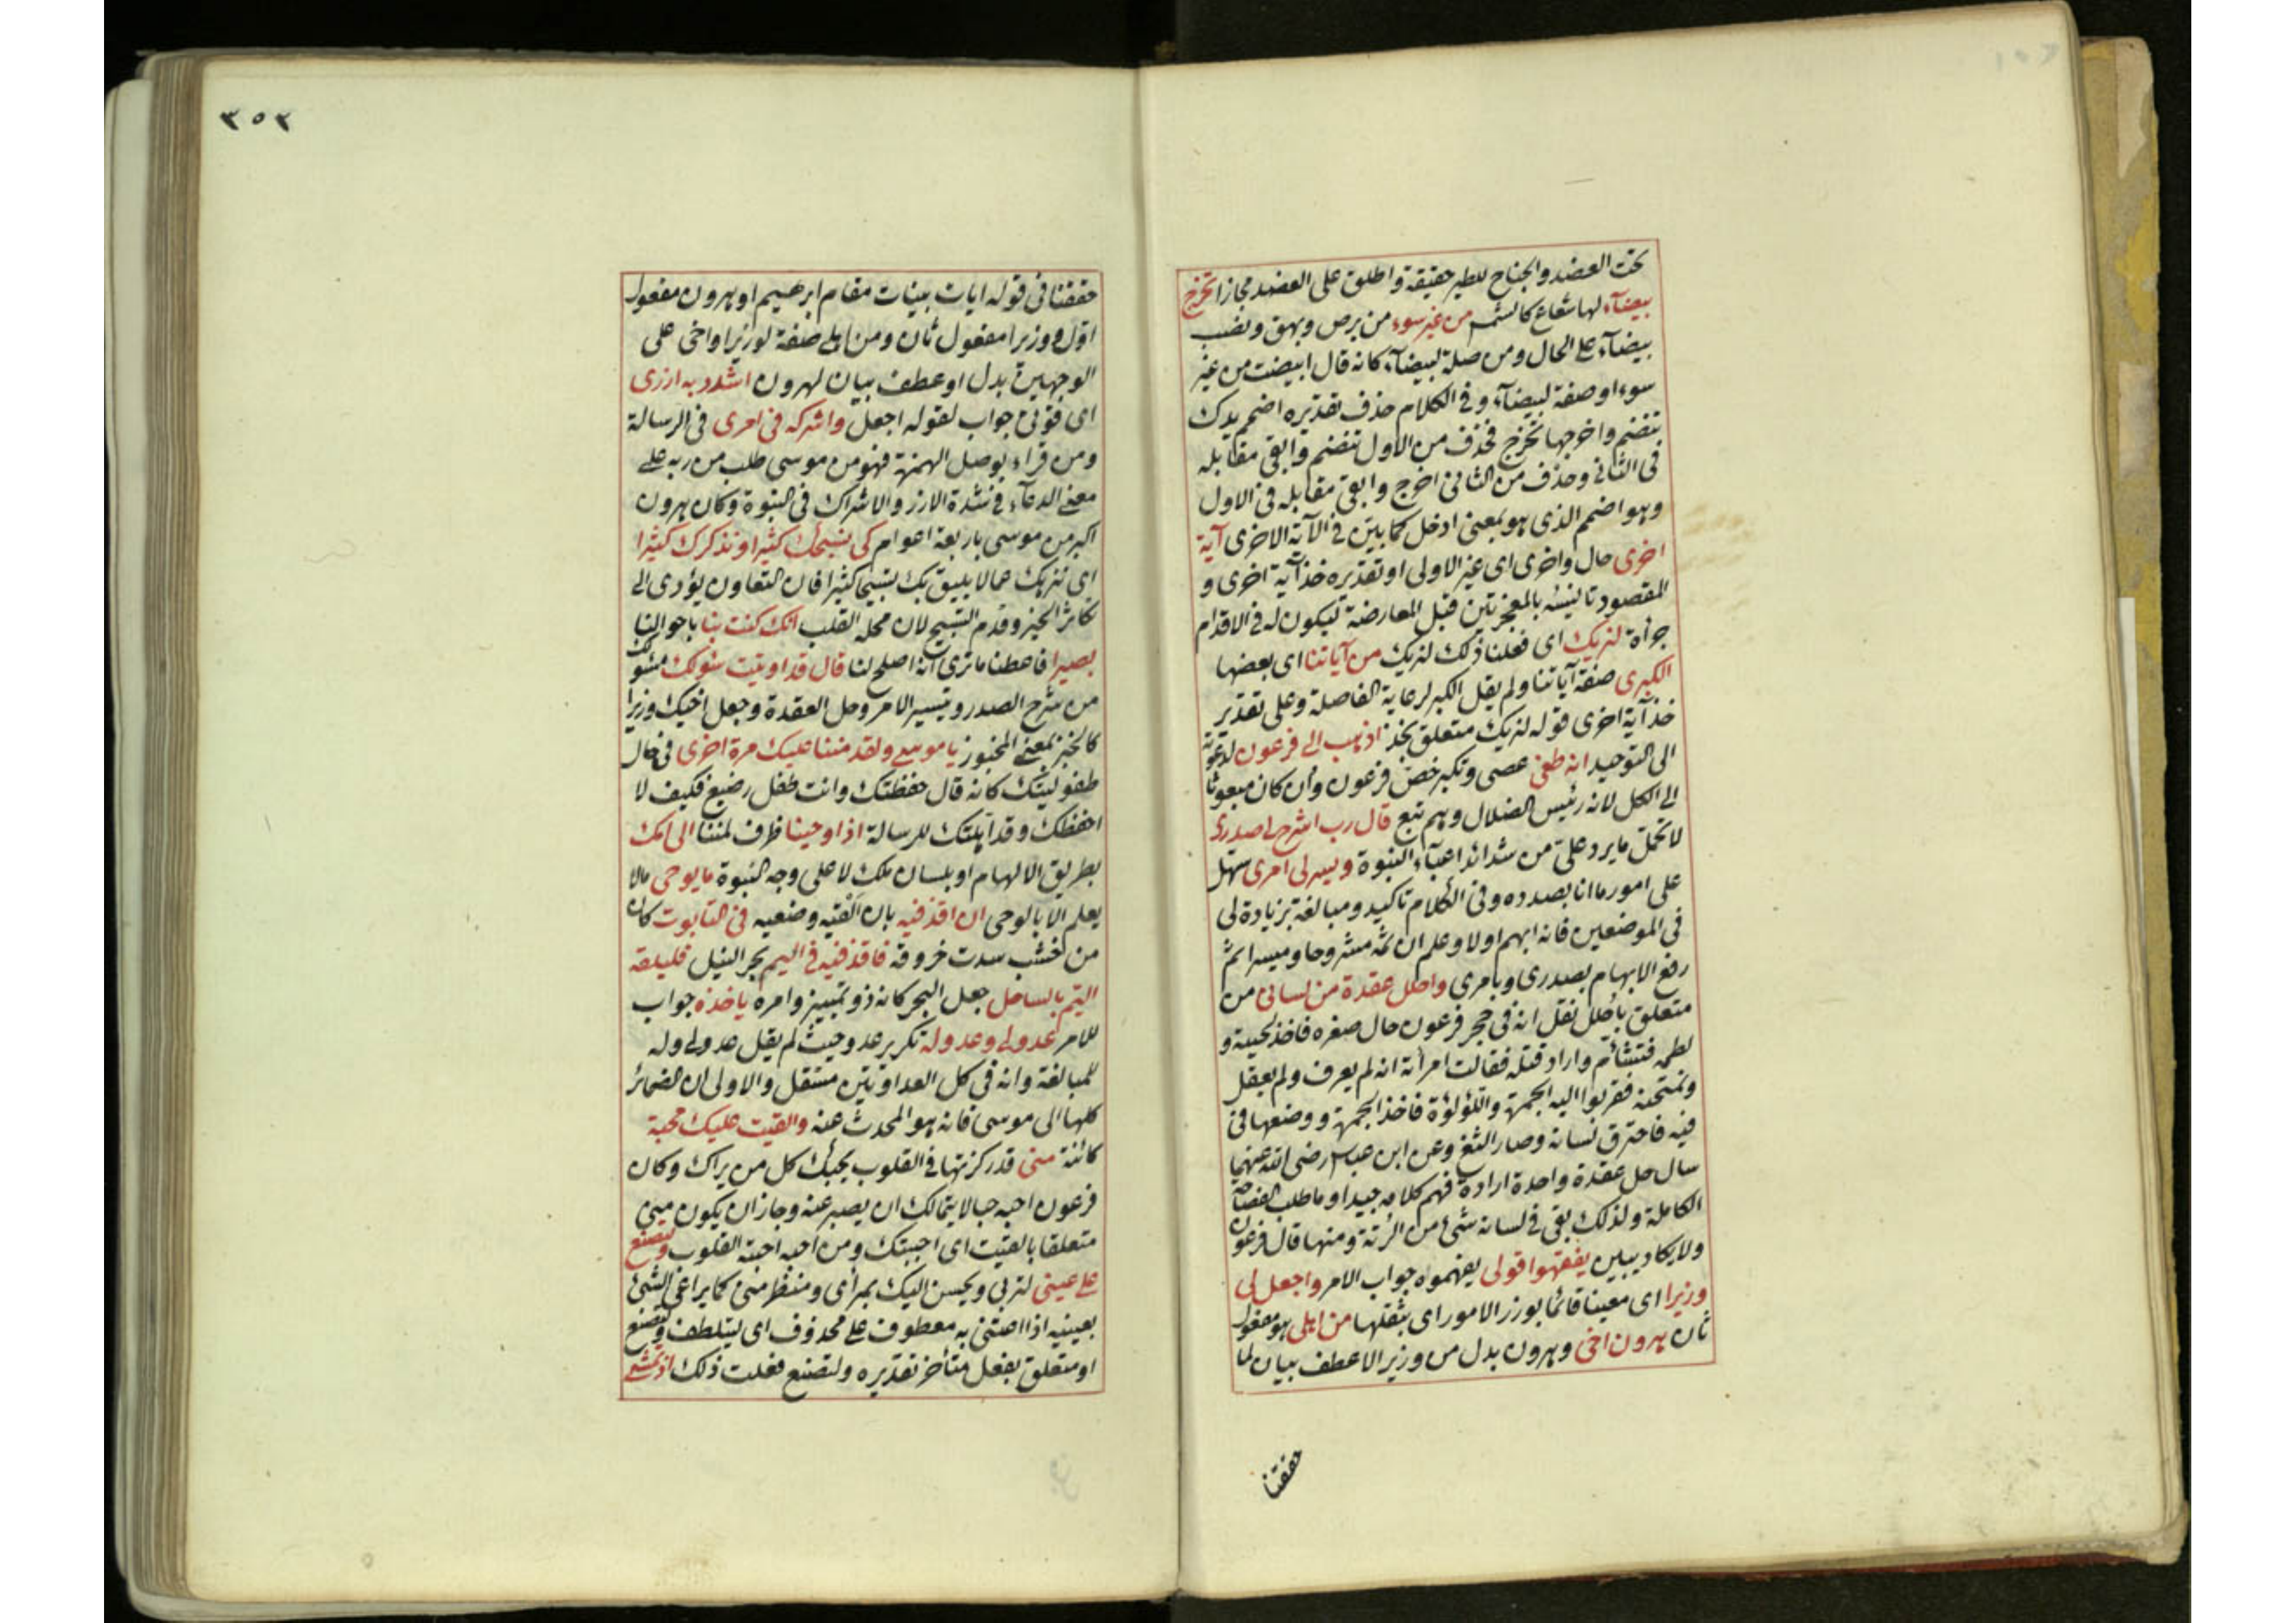 تحت العضد والجناح للطير حقيقة واطلق على العضد مجازا تخرج
بيضآء لها شعاع كالشمس من غير سوء من برص وبهق ونصب
بيضآء على الحال ومن صلة لبيضآء كانه قال ابيضت من غير
سوء او صفة لبيضآء وفى الكلام حذف تقديره اضمم يدك
تنضم واخرجها تخرج فحذف من الاول تنضم وابقى مقابله
فى الثانى وحذف من الثانى اخرج وابقى مقابله فى الاول
وهو اضمم الذى هو بمعنى ادخل كما بين فى الآية الاخرى آية
اخرى حال واخرى اى غير الاولى او تقديره خذ آية اخرى و
المقصود تانيسه بالمعجزتين قبل المعارضة ليكون له فى الاقدام
جرأة لنريك اى فعلنا ذلك لنريك من آياتنا اى بعضها
الكبرى صفة آياتنا ولم يقل الكبر لرعاية الفاصلة وعلى تقدير
خذ آية اخرى قوله لنريك متعلق بخذ اذهب الى فرعون لدعوته
الى التوحيد انه طغى عصى وتكبر خص فرعون وان كان مبعوثا
الى الكل لانه رئيس الضلال وهم تبع قال رب اشرح لى صدرى
لاتحمل ما يرد على من شدائد اعبآء النبوة ويسر لى امرى سهل
على امور ما انا بصدده وفى الكلام تاكيد ومبالغة بزيادة لى
فى الموضعين فانه ابهم اولا وعلم ان ثمه مشروحا وميسرا ثم
رفع الابهام بصدرى وبامرى واحلل عقدة من لسانى من
متعلق باحلل نقل انه فى حجر فرعون حال صغره فاخذ لحيته و
لطمه فتشأم واراد قتله فقالت امرأته انه لم يعرف ولم يعقل
ونمتحنه فقربوا اليه الجمرة واللؤلؤة فاخذ الجمرة ووضعها فى
فيه فاحترق لسانه وصار الثغ وعن ابن عباس رضى الله عنهما
سال حل عقدة واحدة ارادة فهم كلامه جيدا وما طلب الفصاحة
الكاملة ولذلك بقى فى لسانه شئ من الرتة ومنها قال فرعون
ولا يكاد يبين يفقهوا قولى يفهموه جواب الامر واجعل لى
وزيرا اى معينا قائما بوزر الامور اى بثقلها من اهلى هو مفعول
ثان هرون اخى وهرون بدل من وزيرا لا عطف بيان لما
حققنا
٣٥٣
حققنا فى قوله ايات بينات مقام ابرهيم او هرون مفعول
اول ووزيرا مفعول ثان ومن اهلى صفة لوزيرا واخى على
الوجهين بدل او عطف بيان لهرون اشدد به ازرى
اى قوتى جواب لقوله اجعل واشركه فى امرى فى الرسالة
ومن قراء بوصل الهمزة فهو من موسى طلب من ربه على
معنى الدعآء فى شدة الازر والاشراك فى النبوة وكان هرون
اكبر من موسى باربعة اعوام كى نسبحك كثيرا ونذكرك كثيرا
اى ننزهك عما لا يليق بك تسبيحا كثيرا فان التعاون يؤدى الى
تكاثر الخير وقدم التسبيح لان محله القلب انك كنت بنا باحوالنا
بصيرا فاعطنا ما ترى انه اصلح لنا قال قد اوتيت سؤلك مسئولك
من شرح الصدر وتيسير الامر وحل العقدة وجعل اخيك وزيرا
كالخبز بمعنى المخبوز يا موسى ولقد مننا عليك مرة اخرى فى حال
طفوليتك كانه قال حفظتك وانت طفل رضيع فكيف لا
احفظك وقد اهلتك للرسالة اذ اوحينا ظرف لمننا الى امك
بطريق الالهام او بلسان ملك لا على وجه النبوة ما يوحى مالا
يعلم الا بالوحى ان اقذفيه بان القيه وضعيه فى التابوت كان
من خشب سدت خروقه فاقذفيه فى اليم بحر النيل فليلقه
اليم بالساحل جعل البحر كانه ذو تمييز وامره ياخذه جواب
للامر عدو لى وعدو له تكرير عدو حيث لم يقل عدو لى وله
للمبالغة وانه فى كل العداوتين مستقل والاولى ان الضمائر
كلها الى موسى فانه هو المحدث عنه والقيت عليك محبة
كائنة منى قد ركزتها فى القلوب يحبك كل من يراك وكان
فرعون احبه حبا لا يتمالك ان يصبر عنه وجاز ان يكون منى
متعلقا بالقيت اى احببتك ومن احبه احبته القلوب ولتصنع
على عينى لتربى ويحسن اليك بمرأى ومنظر منى كما يراعى الشئ
بعينيه اذا اعتنى به معطوف على محذوف اى ليتلطف ولتصنع
او متعلق بفعل متأخر تقديره ولتصنع فعلت ذلك اذ تمشى